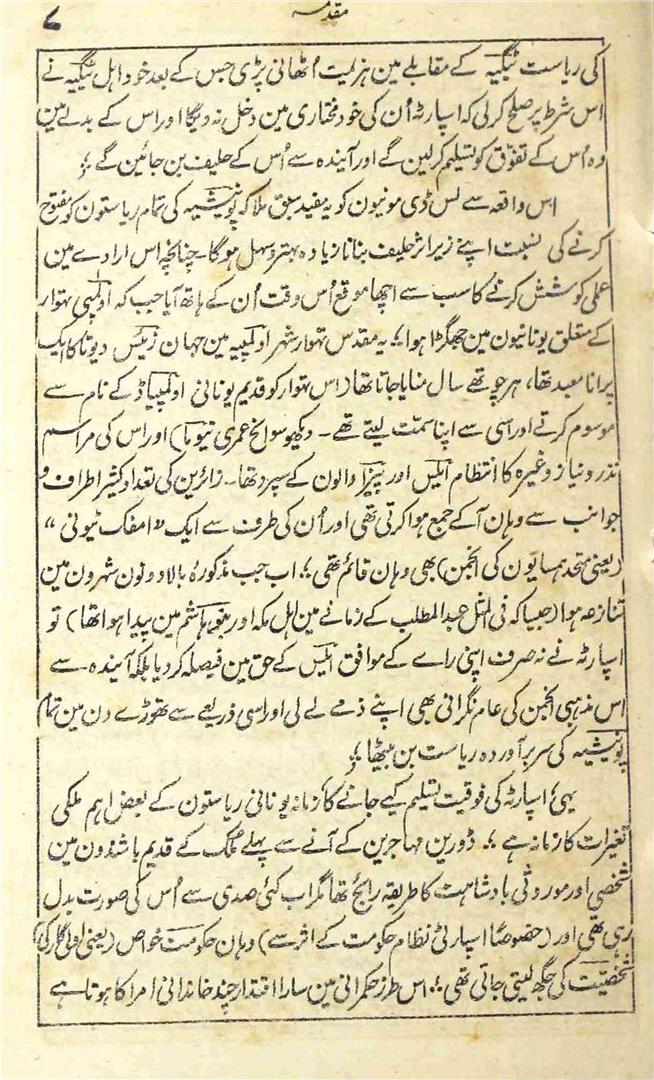 مقدمہ
۷
کی ریاست ٹیگیہ کے مقابلے مین ہزیمت اُٹھانی پڑی جس کے بعد خود اہل ٹیگیہ نے
اس شرط پر صلح کرلی کہ اسپارٹہ اُن کی خود مختاری مین دخل نہ دیگا اور اس کے بدلے مین
وہ اُس کے تفوّق کو تسلیم کرلین گے اور آیندہ سے اُس کے حلیف بن جائین گے ؛
اس واقعہ سے لس ڈی مونیون کو یہ مفید سبق ملا کہ پونیشیہ کی تمام ریاستون کو مفتوح
کرنے کی نسبت اپنے زیر اثر حلیف بنانا زیادہ بہتر و سہل ہوگا۔ چنانچہ اس ارادے مین
عملی کوشش کرنے کا سب سے اچھا موقع اُس وقت اُن کے ہاتھ آیا جب کہ اولمپی تہوار
کے متعلق یونانیون مین جھگڑا ہوا ؛ یہ مقدس تہوار شہر اولمپیہ مین جہان زئیس دیوتا کا ایک
پرانا معبد تھا، ہر چوتھے سال منایا جاتا تھا (اس تہوار کو قدیم یونانی اولمپیاڈ کے نام سے
موسوم کرتے اور اسی سے اپنا سمت لیتے تھے ۔ دیکھو سوانح عمری نیوما) اور اس کی مراسم
نذر و نیاز وغیرہ کا انتظام ایلیس اور پیزا والون کے سپرد تھا۔ زائرین کی تعداد کثیر اطراف و
جوانب سے وہان آکے جمع ہوا کرتی تھی اور اُن کی طرف سے ایک "امفک ٹیونی"
(یعنی متحد ہمسایون کی انجمن) بھی وہان قائم تھی ؛ اب جب مذکورۂ بالا دونون شہرون مین
تنازعہ ہوا (جیسا کہ فی المثل عبدالمطلب کے زمانے مین اہل مکہ اور بنو ہاشم مین پیدا ہوا تھا) تو
اسپارٹہ نے نہ صرف اپنی راے کے موافق ایلیس کے حق مین فیصلہ کردیا بلکہ آیندہ سے
اس مذہبی انجمن کی عام نگرانی بھی اپنے ذمے لے لی اور اسی ذریعے سے تھوڑے دن مین تمام
پونیشیہ کی سربرآوردہ ریاست بن بیٹھا ؛
یہی اسپارٹہ کی فوقیت تسلیم کیے جانے کا زمانہ یونانی ریاستون کے بعض اہم ملکی
تغیرات کا زمانہ ہے ؛ ڈورین مہاجرین کے آنے سے پہلے ملک کے قدیم باشندون مین
شخصی اور موروثی بادشاہت کا طریقہ رائج تھا مگر اب کئی صدی سے اُس کی صورت بدل
رہی تھی اور (خصوصًا اسپارٹی نظام حکومت کے اثر سے) وہان حکومت خواص (یعنی اولی گارکی)
شخصیّت کی جگھ لیتی جاتی تھی ؛ اس طرز حکمرانی مین سارا اقتدار چند خاندانی امرا کا ہوتا ہے